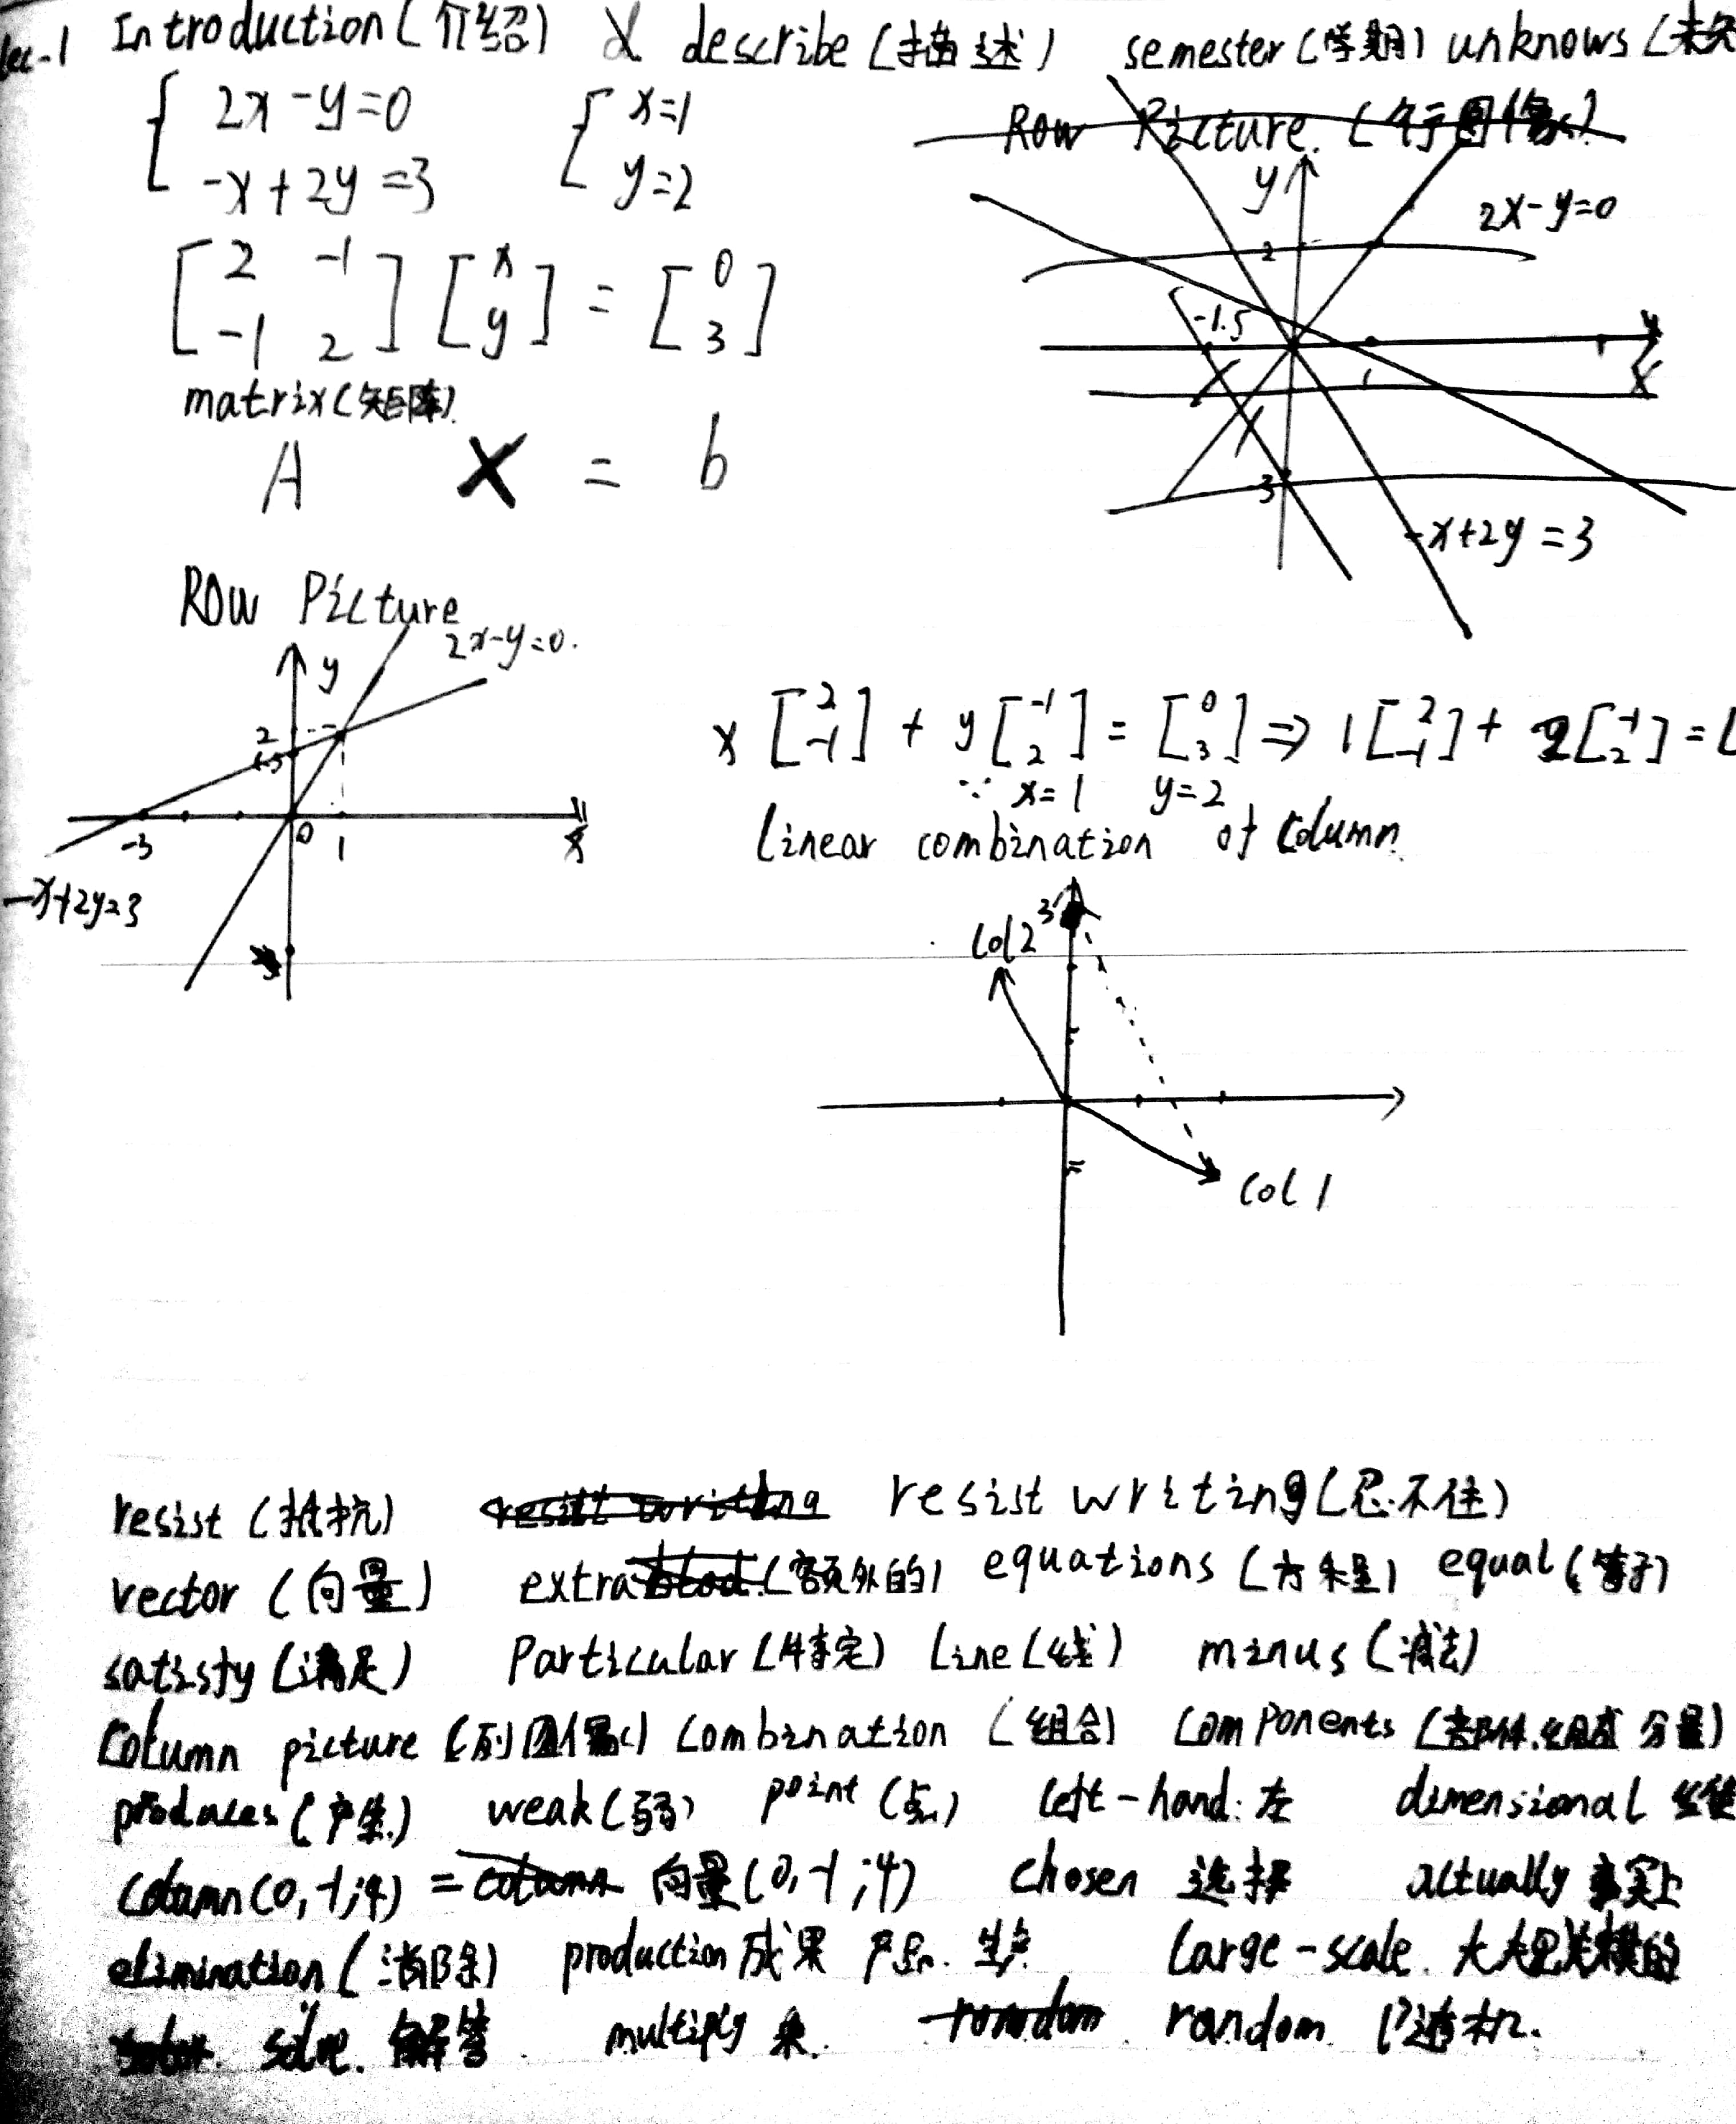 lec-1 Introduction(介绍) describe(描述) semester(学期) unknows(未知
2x-y=0
-x+2y=3
x=1
y=2
Row Picture.(行图像)
y
2x-y=0
2
-1.5
1
x
-3
-x+2y=3
[2 -1; -1 2] [x; y] = [0; 3]
matrix(矩阵)
A X = b
Row Picture
2x-y=0.
y
2
1.5
-3 0 1 x
-x+2y=3
x[2; -1] + y[-1; 2] = [0; 3] ⇒ 1[2; -1] + 2[-1; 2] = [
∵ x=1 y=2
linear combination of column.
3
col2
col 1
resist (抵抗) resist writing resist writing(忍不住)
vector (向量) extra (额外的) equations (方程) equal(等于)
satisfy(满足) Particular(特定) Line(线) minus(减法)
Column picture (列图像) Combination (组合) Components (部件.组成 分量)
produces(产生) weak(弱) point (点) left-hand:左 dimensional 维
Column(0,-1,4) = column 向量(0,-1,4) chosen 选择 actually 事实上
elimination(消除) production 成果 产品. 生产. Large-scale. 大规模的
solve. 解答. multiply 乘. random. random. 随机.